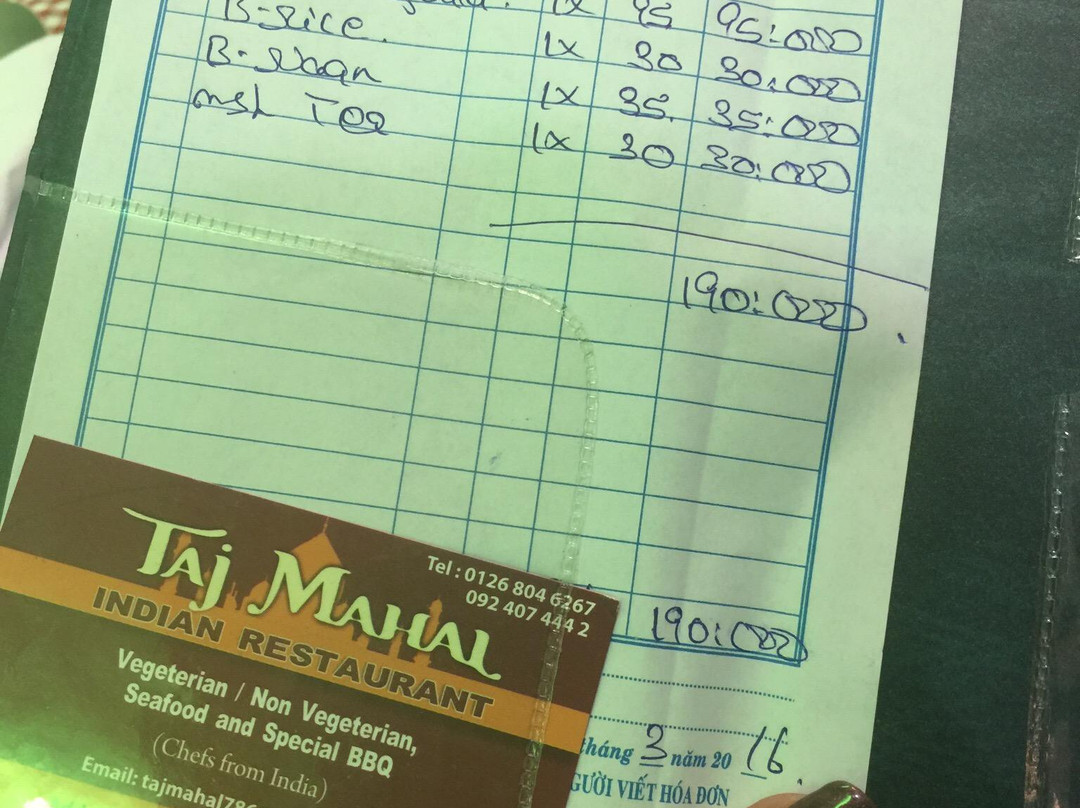 1x 95 95:000
B-Rice. 1x 30 30:000
B-Naan 1x 35. 35:000
Msl Tea 1x 30 30:000
190:000
190:000
Tel : 0126 804 6267
092 407 444 2
TAJ MAHAL
INDIAN RESTAURANT
Vegeterian / Non Vegeterian,
Seafood and Special BBQ
(Chefs from India)
Email: tajmahal786
tháng 3 năm 20 16.
GƯỜI VIẾT HÓA ĐƠN